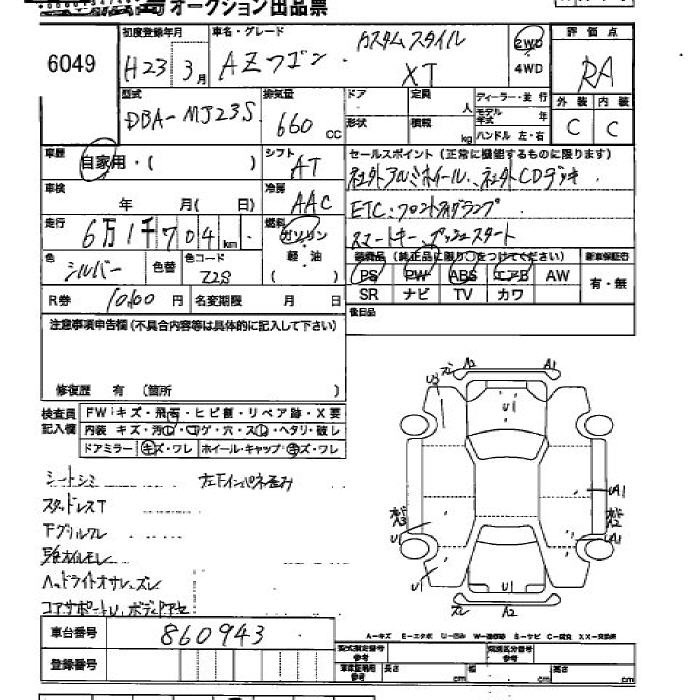 オークション出品票
6049
初度登録年月 H23 3月
車名・グレード AZワゴン カスタムスタイル XT
2WD
4WD
評価点 RA
外装 内装
C C
型式 DBA-MJ23S
排気量 660 CC
ドア 定員 人
形状 積載 kg
ディーラー・並行
モデル年式 年
ハンドル 左・右
車歴 自家用・( )
シフト AT
セールスポイント (正常に機能するものに限ります)
社外アルミホイール、社外CDデッキ
ETC・フロントフォグランプ
スマートキー、プッシュスタート
車検 年 月( 日)
冷房 AAC
走行 6万1千704 km
燃料 ガソリン
軽・油
( )
色 シルバー 色替 色コード Z2S
装備品 (純正品に限り○をつけてください) 新車保証書
PS PW ABS エアB AW
SR ナビ TV カワ
有・無
R券 10,600 円 名変期限 月 日
後日品
注意事項申告欄 (不具合内容等は具体的に記入して下さい)
修復歴 有 (箇所 )
検査員記入欄
FW:キズ・飛石・ヒビ割・リペア跡・X要
内装 キズ・汚れ・コゲ・穴・スレ・ヘタリ・破レ
ドアミラー キズ・ワレ ホイール・キャップ キズ・ワレ
シートシミ 左下インパネ歪み
スタッドレスT
下グリルワレ
ヘッドライトオサレ、ズレ
コアサポートU、ボディ下サビ
ズレ A2 A1
U1
A3
U1
UA1
A2
A1
U1
ズレ A2
車台番号 860943
A-キズ E-エクボ U-凹み W-補修跡 S-サビ C-腐食 XX-交換済
登録番号
型式指定番号 参考
類別区分番号 参考
車庫証明用 参考 長さ cm 幅 cm 高さ cm